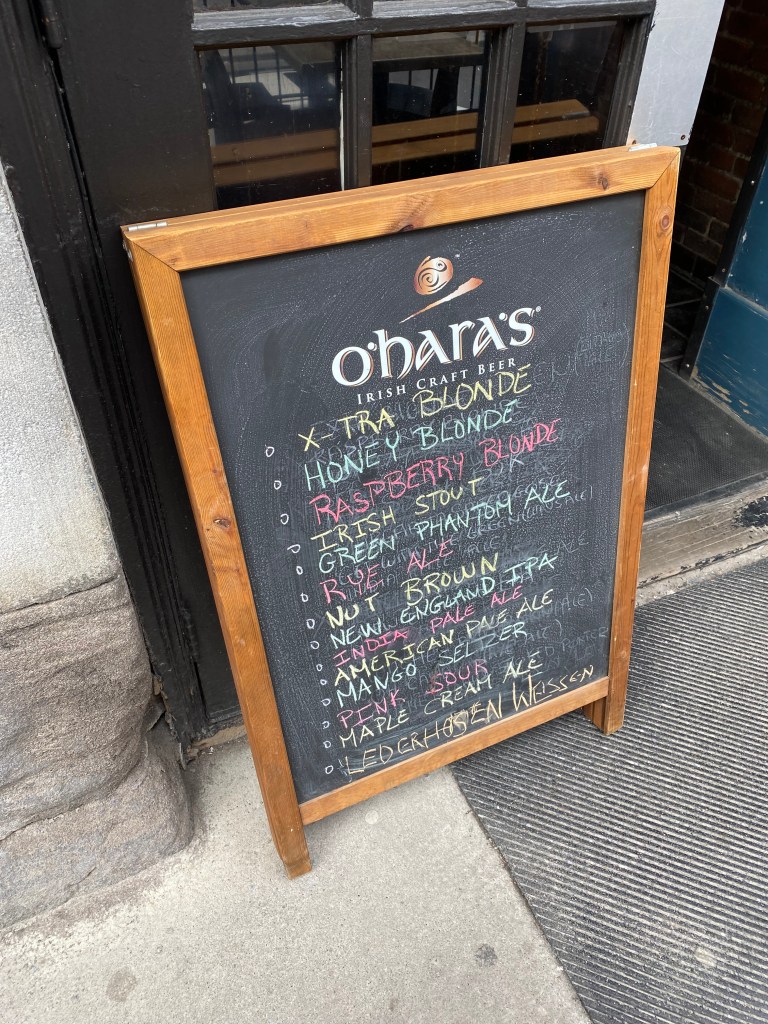 O'HARA'S
IRISH CRAFT BEER
X-TRA BLONDE
HONEY BLONDE
RASPBERRY BLONDE
IRISH STOUT
GREEN PHANTOM ALE
RYE ALE
NUT BROWN
NEW ENGLAND IPA
INDIA PALE ALE
AMERICAN PALE ALE
MANGO SELTZER
PINK SOUR
MAPLE CREAM ALE
LEDERHOSEN WEISSEN